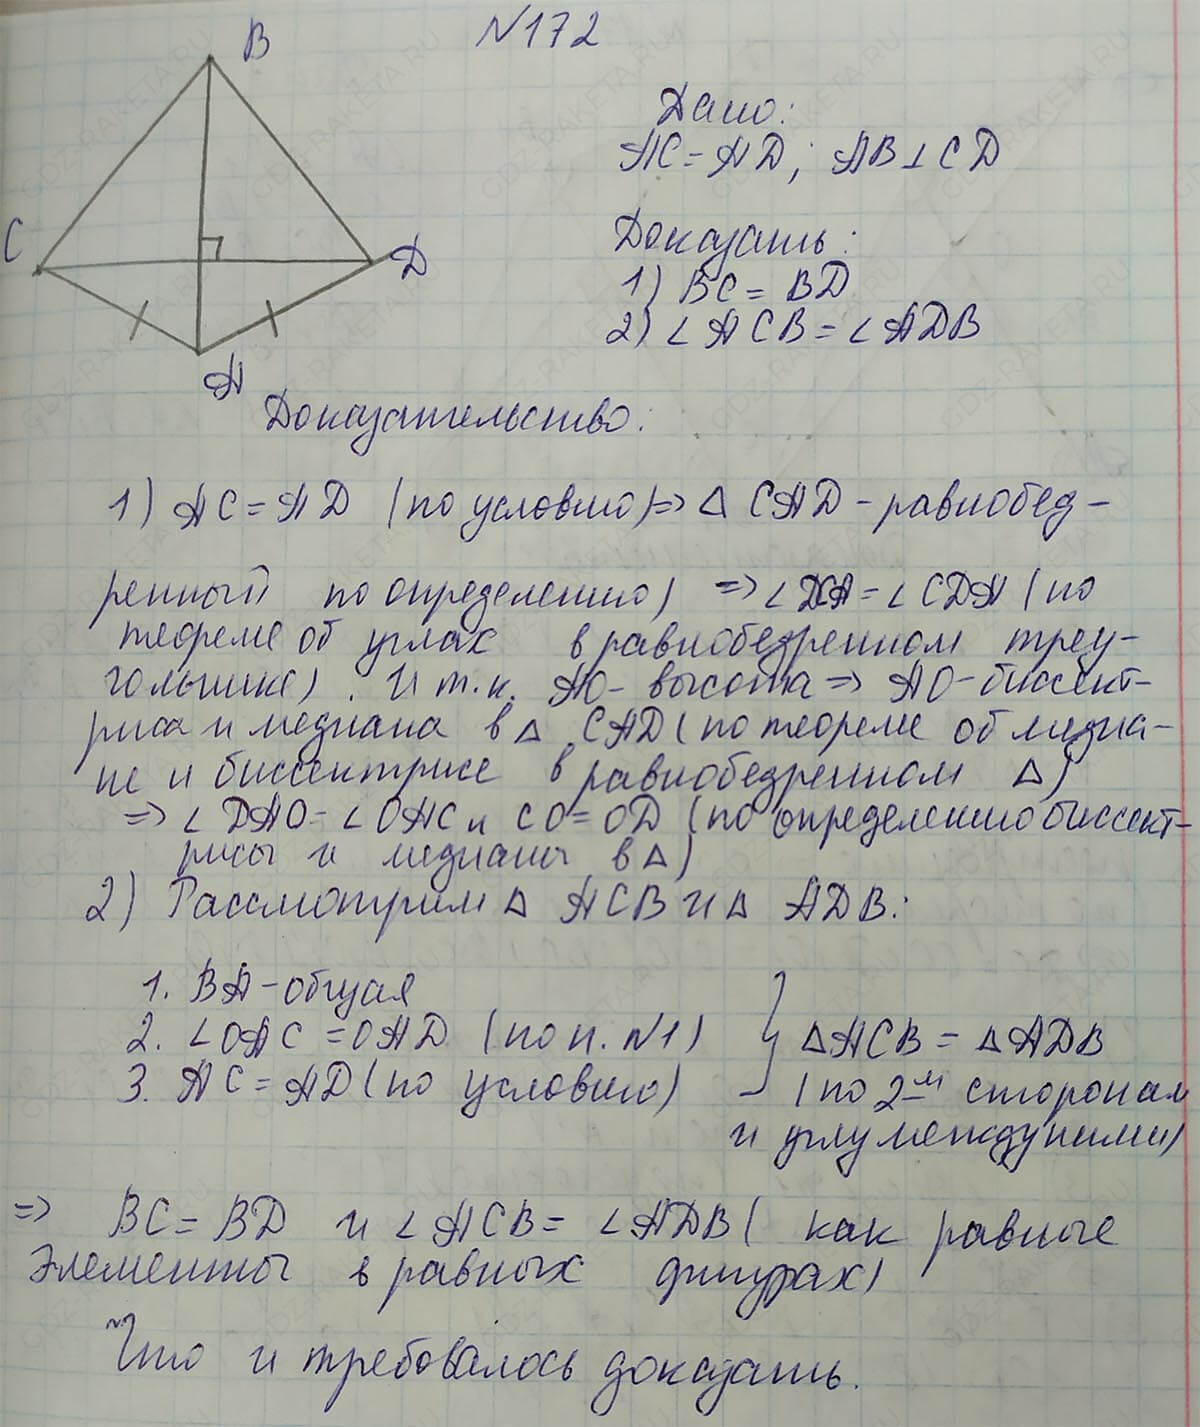 N172
B
C
D
A
Дано:
AC = AD; AB ⊥ CD
Доказать:
1) BC = BD
2) ∠ACB = ∠ADB
Доказательство:
1) AC = AD (по условию) => △ CAD - равнобед-
ренный по определению) => ∠DCA = ∠CDA (по
теореме об углах в равнобедренном треу-
гольнике). И т.к. AO - высота => AO - биссект-
риса и медиана в △ CAD (по теореме об медиа-
не и биссектрисе в равнобедренном △)
=> ∠DAO = ∠OAC и CO = OD (по определению биссект-
рисы и медианы в △)
2) Рассмотрим △ ACB и △ ADB:
1. BA - общая
2. ∠OAC = OAD (по п. N1)
3. AC = AD (по условию)
} △ACB = △ADB
(по 2-м сторонам
и углу между ними)
=> BC = BD и ∠ACB = ∠ADB (как равные
элементы в равных фигурах)
Что и требовалось доказать.